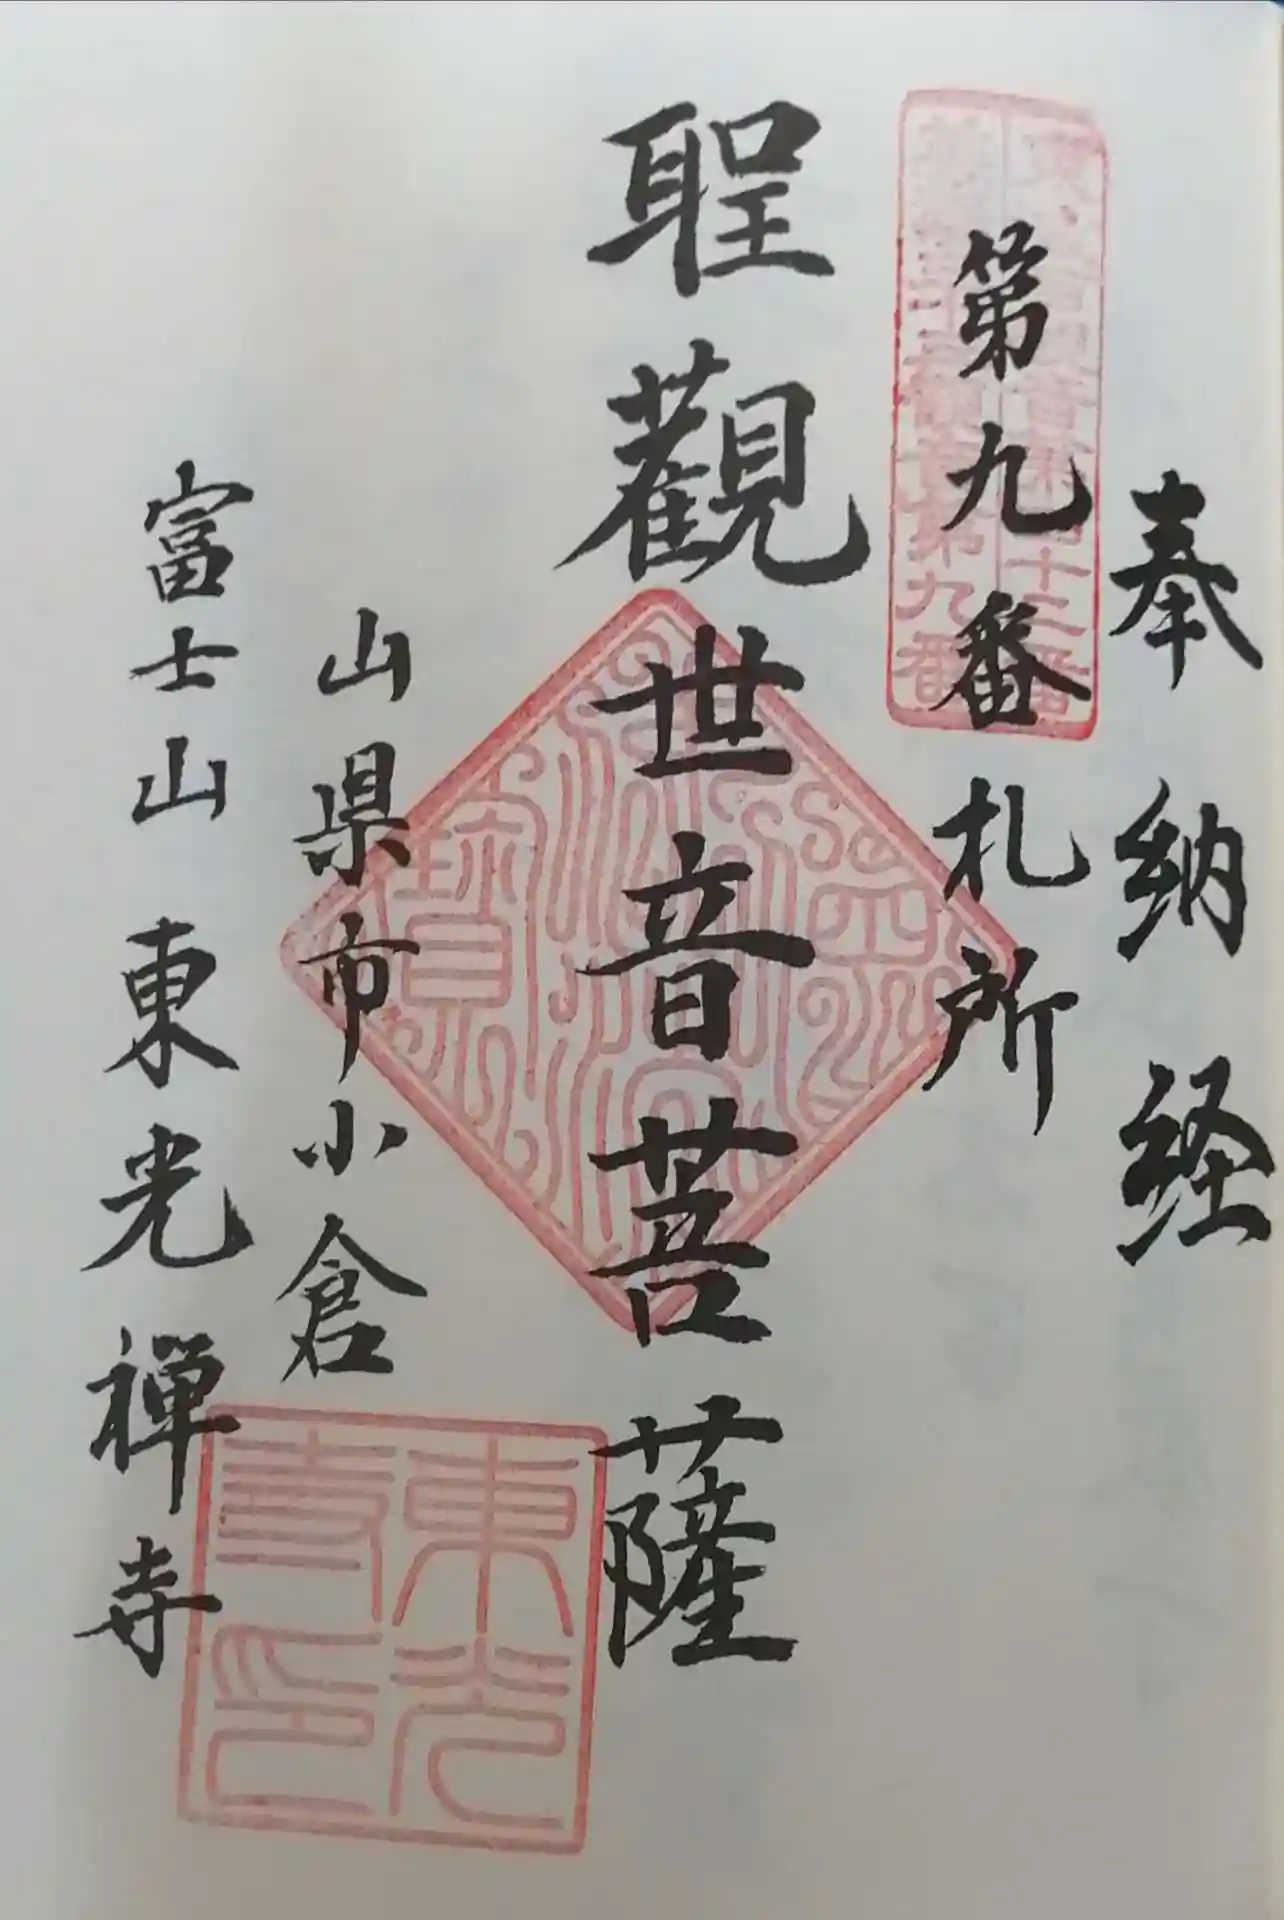 奉納経
第九番札所
聖觀世音菩薩
山県市小倉
富士山 東光禅寺
東光寺印